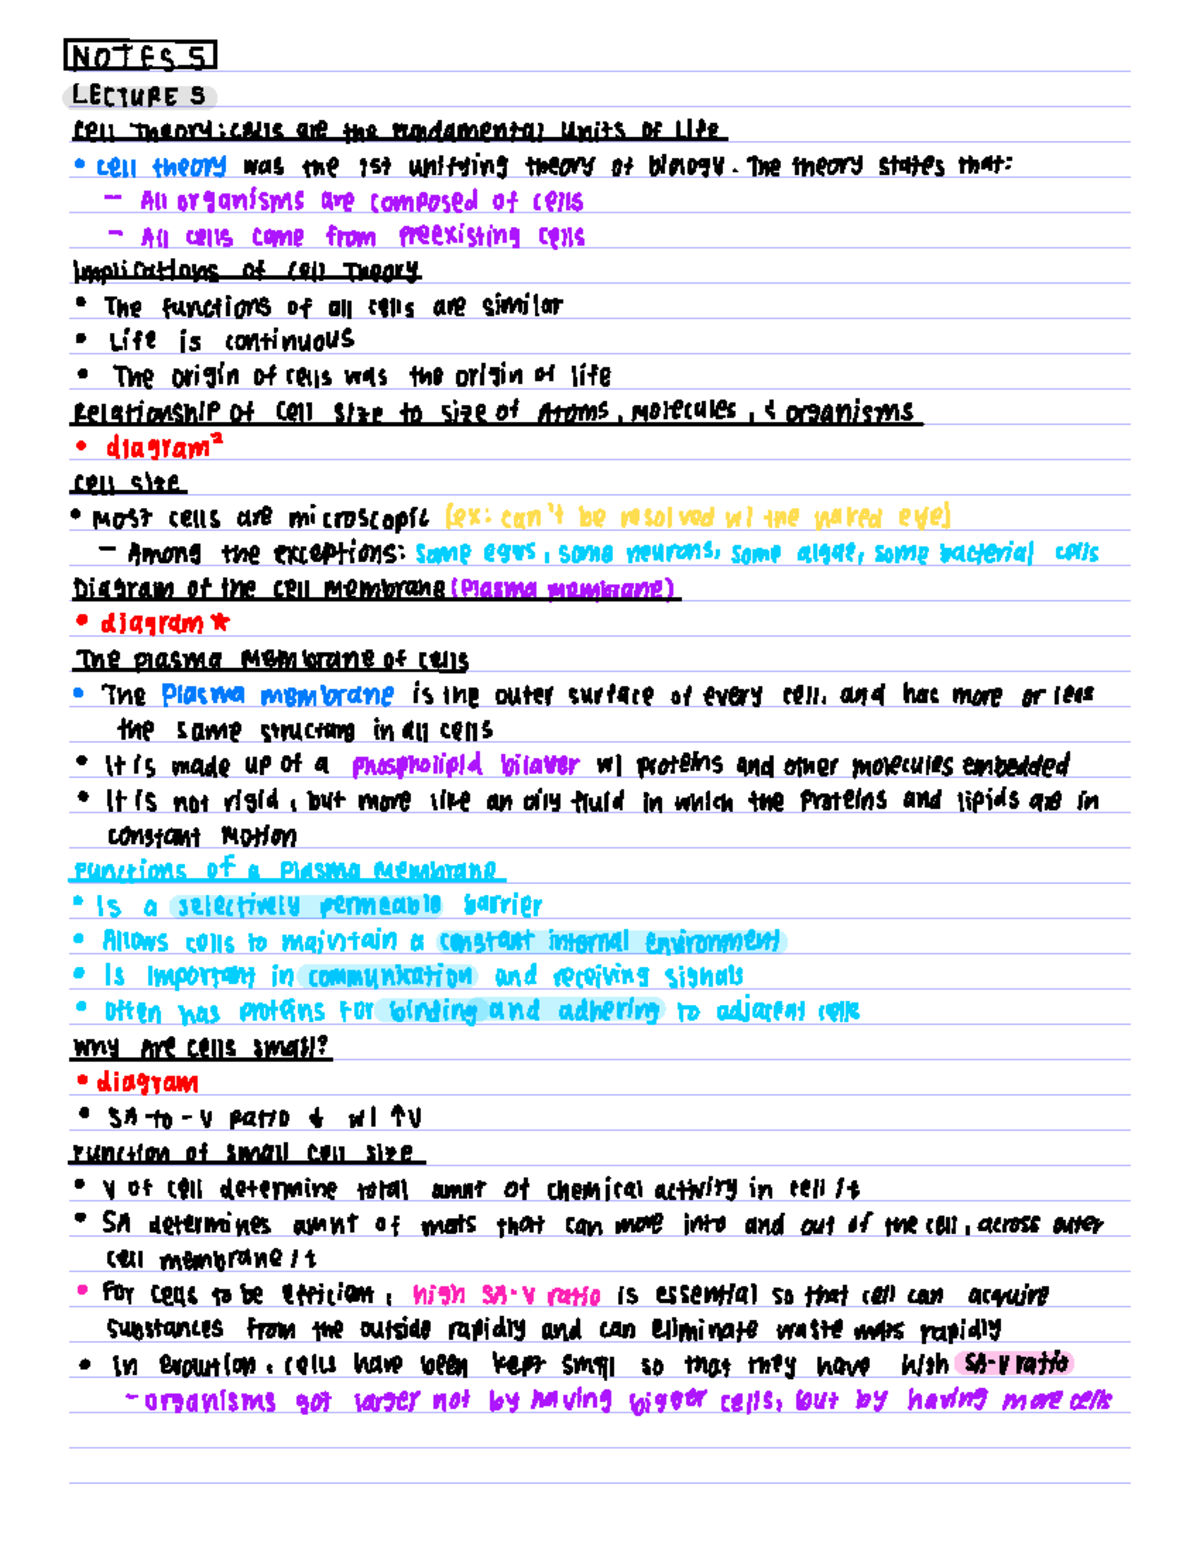 NOTES 5
LECTURE 5
Cell Theory: cells are the fundamental units of Life
• cell theory was the 1st unifying theory of biology. The theory states that:
– All organisms are composed of cells
– All cells come from preexisting cells
Implications of Cell Theory
• The functions of all cells are similar
• Life is continuous
• The origin of cells was the origin of life
Relationship of Cell Size to Size of Atoms, Molecules, & organisms
• diagram²
Cell Size
• Most cells are microscopic (ex: can't be resolved w/ the naked eye)
– Among the exceptions: some eggs, some neurons, some algae, some bacterial cells
Diagram of the Cell Membrane (Plasma Membrane)
• diagram ★
The Plasma Membrane of Cells
• The Plasma membrane is the outer surface of every cell, and has more or less
the same structure in all cells
• It is made up of a phospholipid bilayer w/ proteins and other molecules embedded
• It is not rigid, but more like an oily fluid in which the proteins and lipids are in
constant motion
Functions of a Plasma Membrane
• Is a selectively permeable barrier
• Allows cells to maintain a constant internal environment
• Is important in communication and receiving signals
• Often has proteins for binding and adhering to adjacent cells
Why Are Cells Small?
• diagram
• SA-to-V ratio ↓ w/ ↑V
Function of Small Cell Size
• V of cell determine total amnt of chemical activity in cell/t
• SA determines amnt of mats that can move into and out of the cell, across outer
cell membrane/t
• For cells to be efficient, high SA-V ratio is essential so that cell can acquire
substances from the outside rapidly and can eliminate waste mats rapidly
• In evolution, cells have been kept small so that they have high SA-V ratio
– organisms got larger not by having bigger cells, but by having more cells